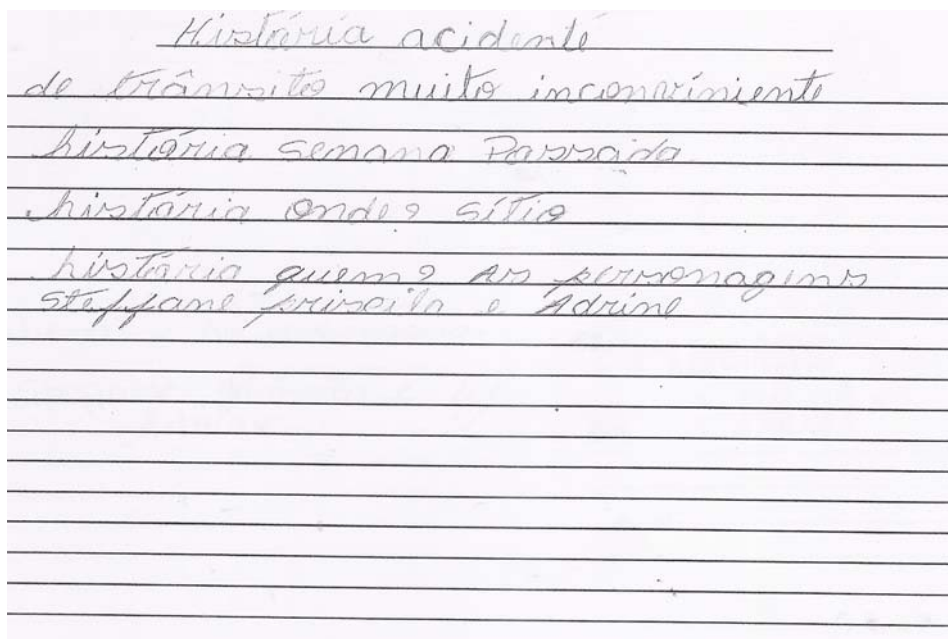 História acidente
de trânsito muito inconviniente
história semana Passada
história onde? sítio
história quem? As personagens
steffane priscila e Adrine